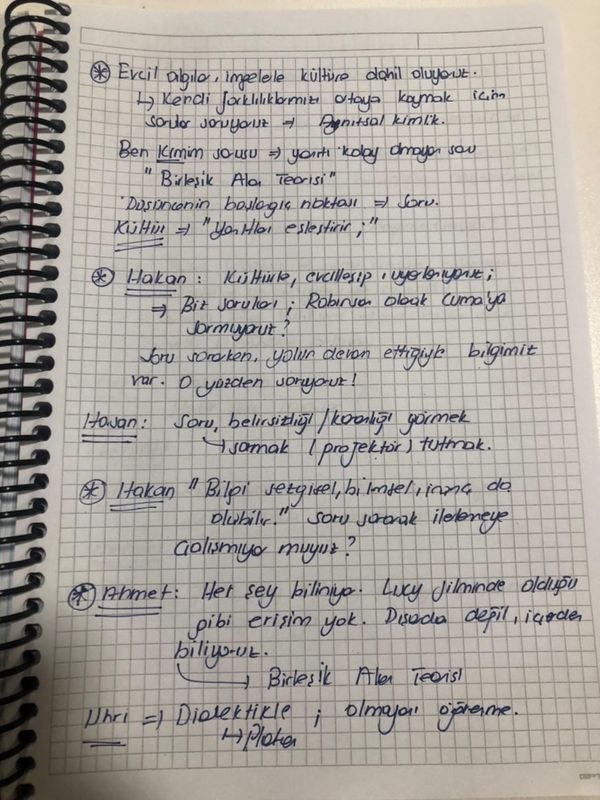 * Evcil algıla, imgelele kültüre dahil oluyoruz.
↳ Kendi farklılıklarımızı ortaya koymak için
sorular soruyoruz ⇒ Ayrıtsal kimlik.
Ben Kimim sorusu ⇒ yanıtı kolay olmayan soru
"Birleşik Alan Teorisi"
Düşüncenin başlangıç noktası ⇒ Soru.
Kültür ⇒ "Yanıtları eşleştirir;"
* Hakan: Kültürle, evcilleşip, uygarlaşıyoruz;
⇒ Biz soruları; Robinson olarak Cuma'ya
sormuyoruz?
Soru sorarken, yolun devam ettiğiyle bilgimiz
var. O yüzden soruyoruz!
Hasan: Soru, belirsizliği/karanlığı görmek
↳ sormak (projektör) tutmak.
* Hakan "Bilgi sezgisel, bilimsel, inanç da
olabilir." Soru sorarak ilerlemeye
çalışmıyor muyuz?
* Ahmet: Her şey biliniyor. Lucy filminde olduğu
gibi erişim yok. Dışarıda değil, içerden
biliyoruz.
Birleşik Alan Teorisi
Uhri ⇒ Dialektikle; olmayanı öğrenme.
↳ Platon